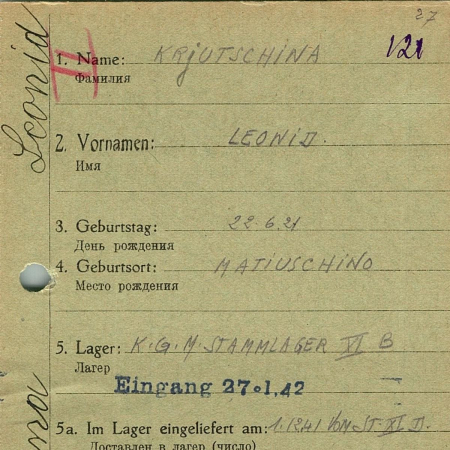 27
V21
Leonid
II
1. Name: KRJUTSCHINA
Фамилия
2. Vornamen: LEONID.
Имя
3. Geburtstag: 22.6.21
День рождения
4. Geburtsort: MATIUSCHINO
Место рождения
5. Lager: K.G.M. STAMMLAGER VI B
Лагерь
Eingang 27.1.42
5a. Im Lager eingeliefert am: 1.1241 VON ST XI D.
Доставлен в лагерь (число)
na